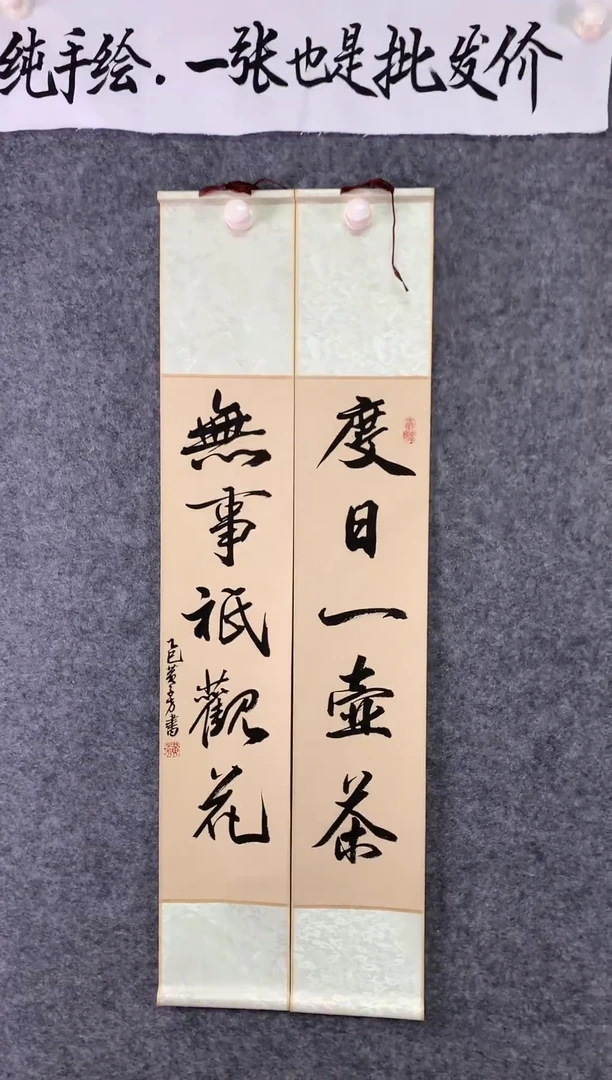 纯手绘.一张也是批发价
度日一壶茶
無事祇觀花
乙巳黄子芳書